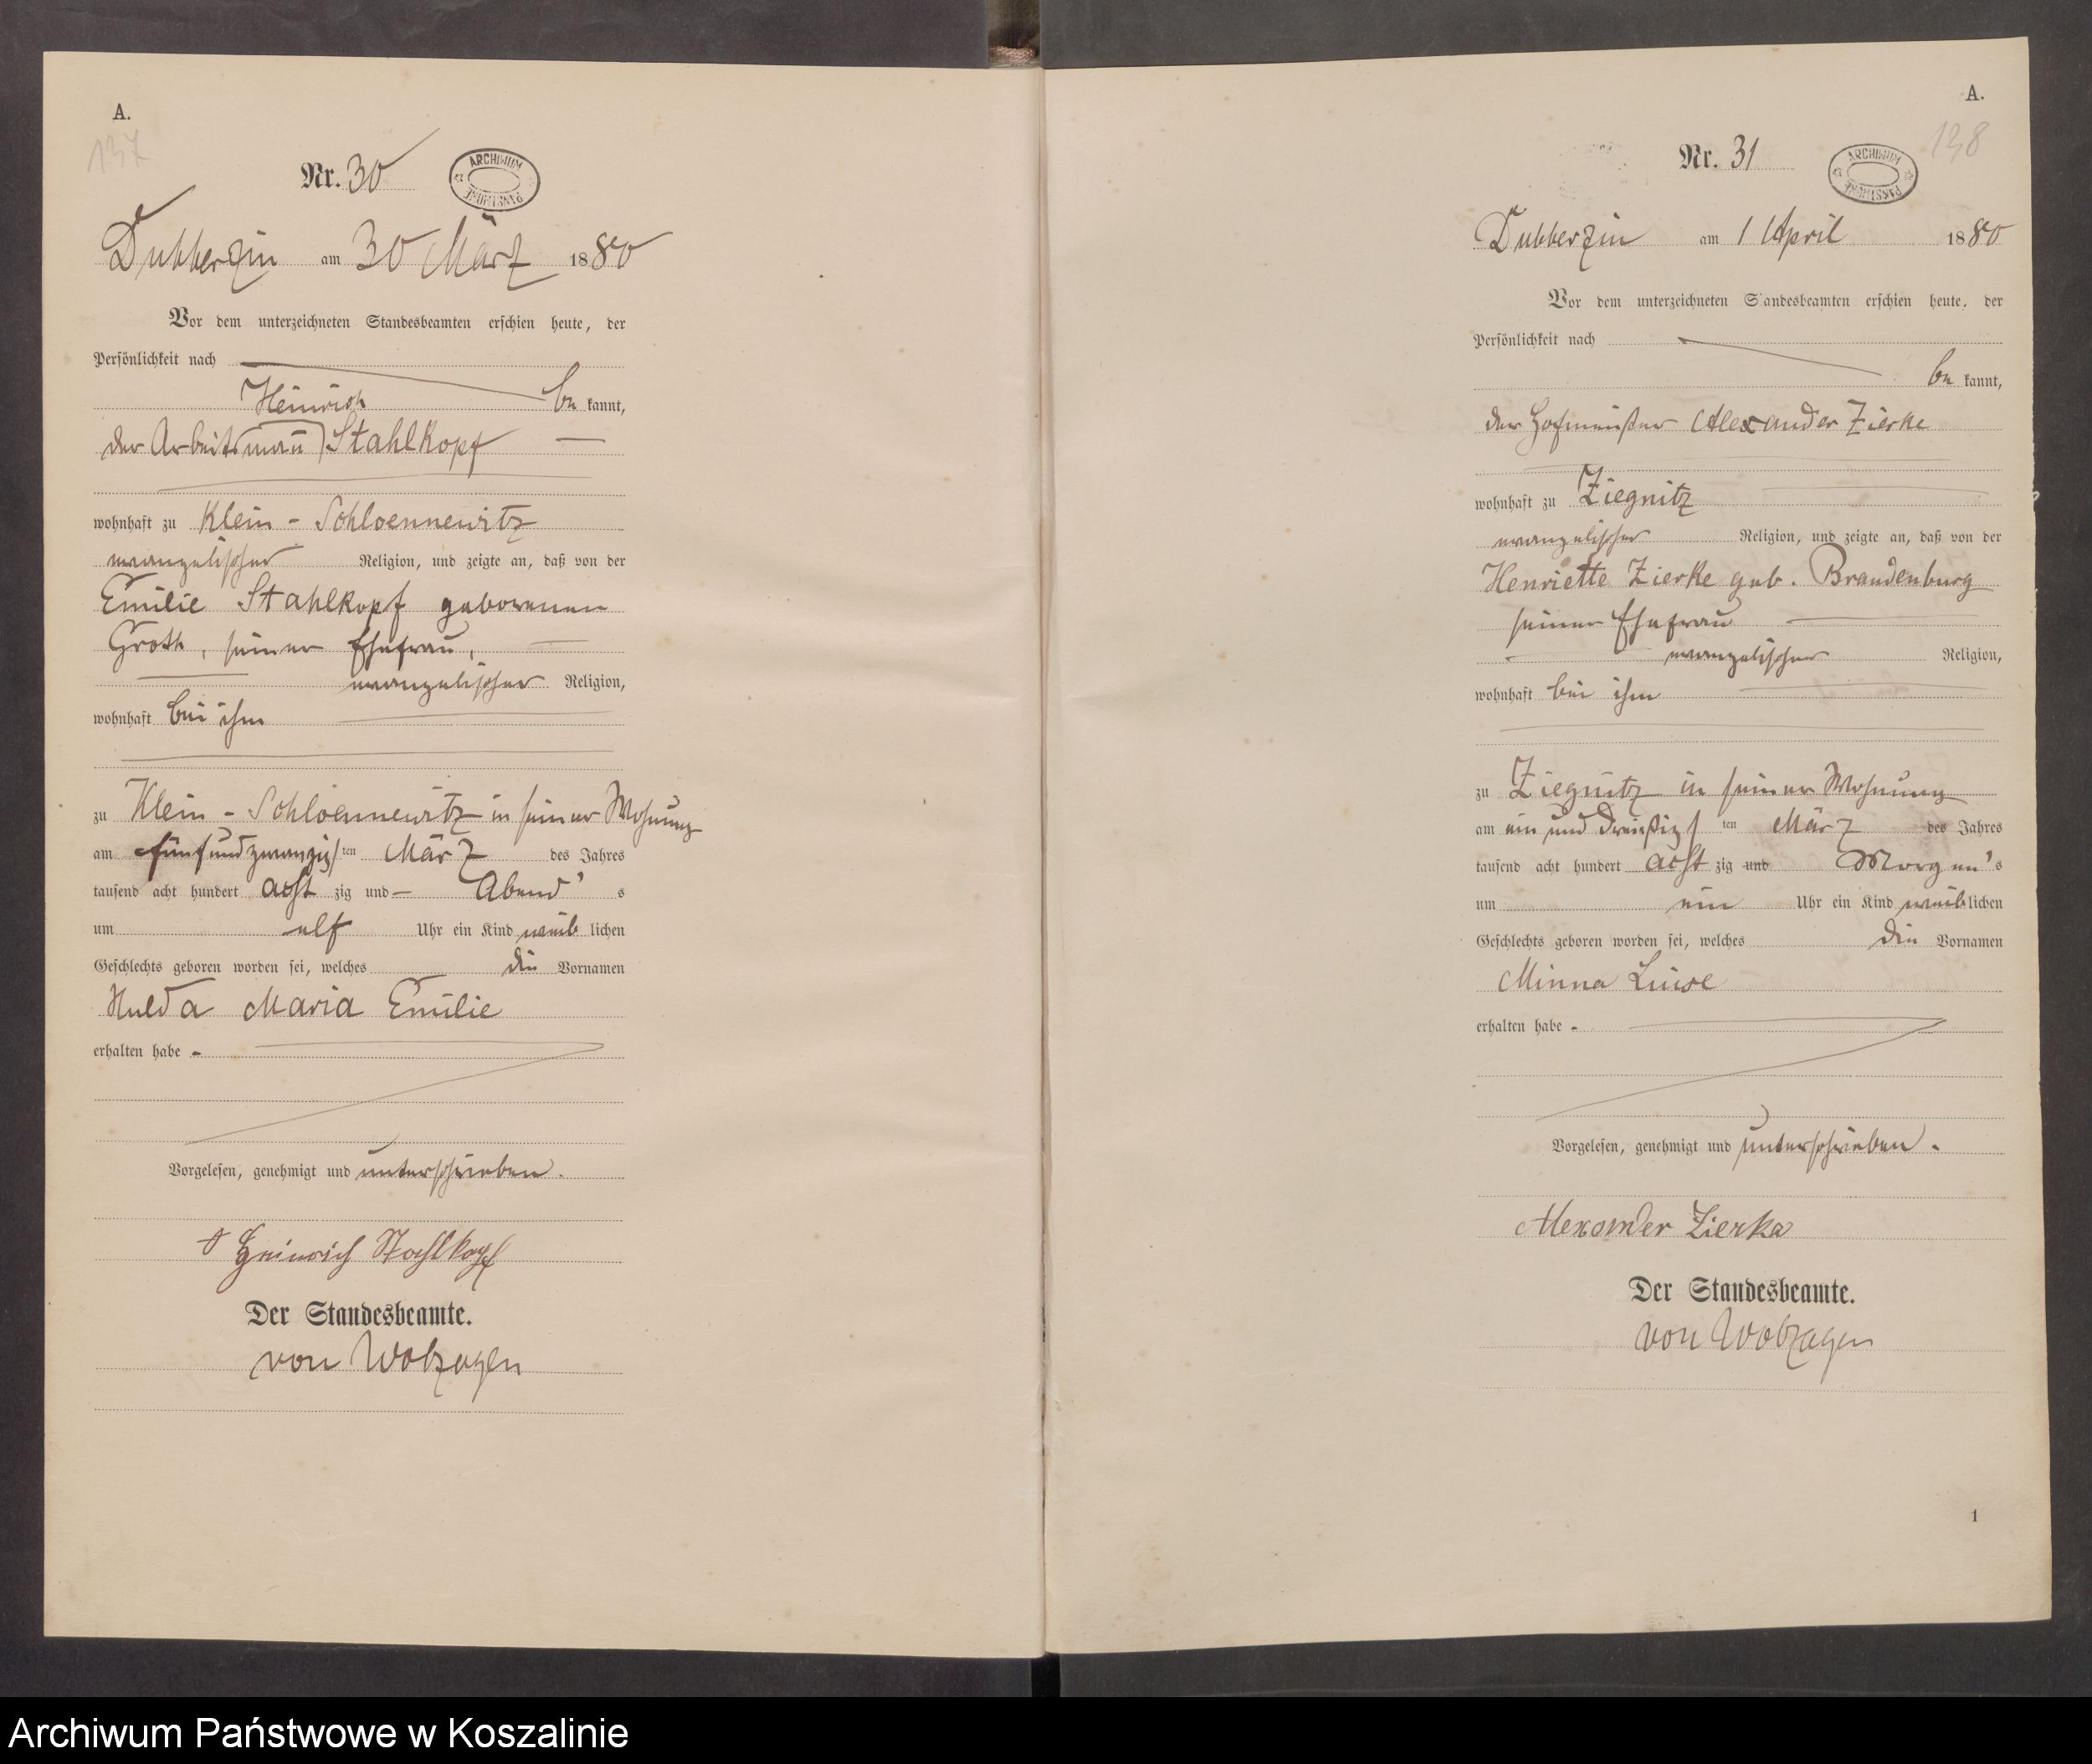 A.
137
Nr. 30
ARCHIWUM PAŃSTWOWE
Dubberzin am 30 März 1880
Vor dem unterzeichneten Standesbeamten erschien heute, der
Persönlichkeit nach
Heinrich be kannt,
der Arbeitsmañ Stahlkopf
wohnhaft zu Klein - Schloennewitz
evangelischer Religion, und zeigte an, daß von der
Emilie Stahlkopf geborenen
Groth, seiner Ehefrau,
evangelischer Religion,
wohnhaft bei ihm
zu Klein - Schloennewitz in seiner Wohnung
am fünfundzwanzigsten März des Jahres
tausend acht hundert acht zig und — Abend's
um elf Uhr ein Kind weib lichen
Geschlechts geboren worden sei, welches die Vornamen
Hulda Maria Emilie
erhalten habe -
Vorgelesen, genehmigt und unterschrieben.
Heinrich Stahlkopf
Der Standesbeamte.
von
A.
138
Nr. 31
ARCHIWUM PAŃSTWOWE
Dubberzin am 1 April 1880
Vor dem unterzeichneten Standesbeamten erschien heute, der
Persönlichkeit nach
be kannt,
der Hofmeister Alexander Zierke
wohnhaft zu Ziegnitz
evangelischer Religion, und zeigte an, daß von der
Henriette Zierke geb. Brandenburg
seiner Ehefrau
evangelischer Religion,
wohnhaft bei ihm
zu Ziegnitz in seiner Wohnung
am ein und dreißigsten März des Jahres
tausend acht hundert acht zig und Morgen's
um ein Uhr ein Kind weiblichen
Geschlechts geboren worden sei, welches die Vornamen
Minna Luise
erhalten habe -
Vorgelesen, genehmigt und unterschrieben.
Alexander Zierke
Der Standesbeamte.
von
1
Archiwum Państwowe w Koszalinie